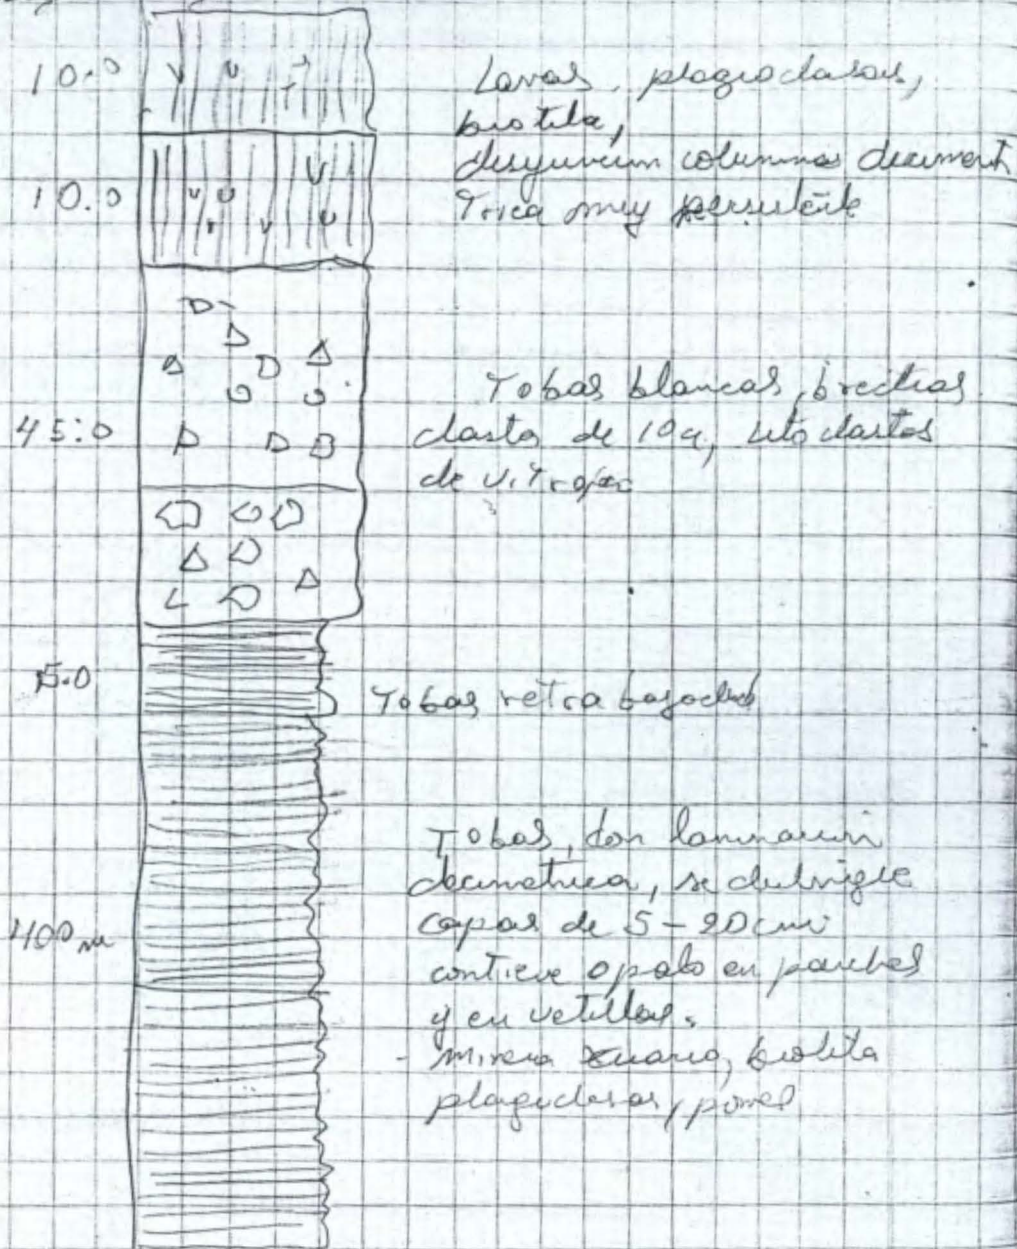 10.0
Lavas, plagioclasas,
biotita,
disyunción columnas deciment
10.0
trica muy persistente
Tobas blancas, brechas
45.0
clastos de 10a, litoclastos
de vitrófiro
5.0
Tobas retrabajadas
Tobas, con laminación
decimetrica, se distingue
400 m
capas de 5-20cm
contiene opalo en parches
y en vetillas.
- minera cuarzo, biotita
plagioclasas, pomes